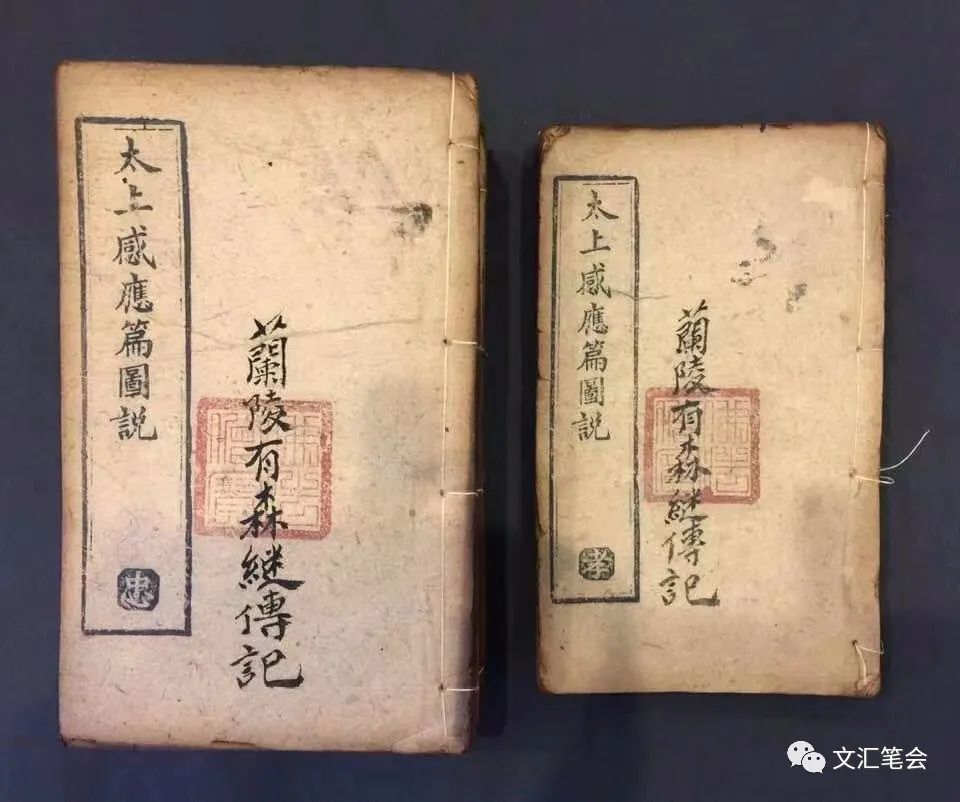 太上感應篇圖説
忠
蘭陵有森繼傳記
太上感應篇圖説
孝
蘭陵有森繼傳記
文汇笔会